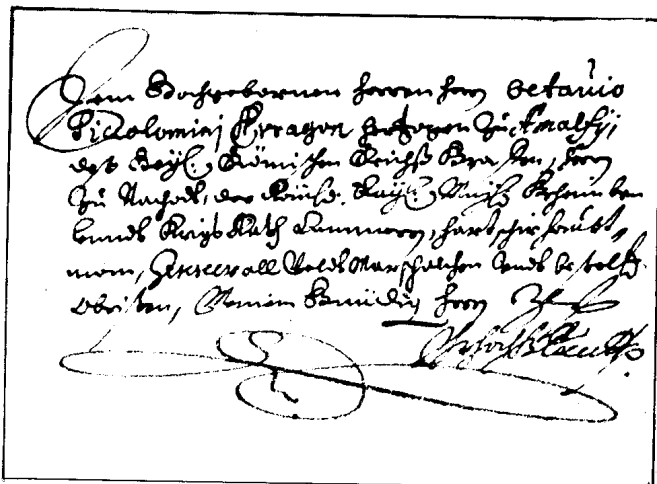 Dem Hochgebornen Herren Herrn Octavio
Piccolominj Arragon Hertzogen Zu Amalfij,
deß Heyl: Römischen Reichß Graffen, Herrn
Zu Nachodt, der Röm: Kay: Geheimben
unndt Kriegs Rath Cammerern, Hartschir Haubt,,
man, Generall Veldt Marschalckhen Unndt bestelten
Obristen, Meinem Gnedig Herrn